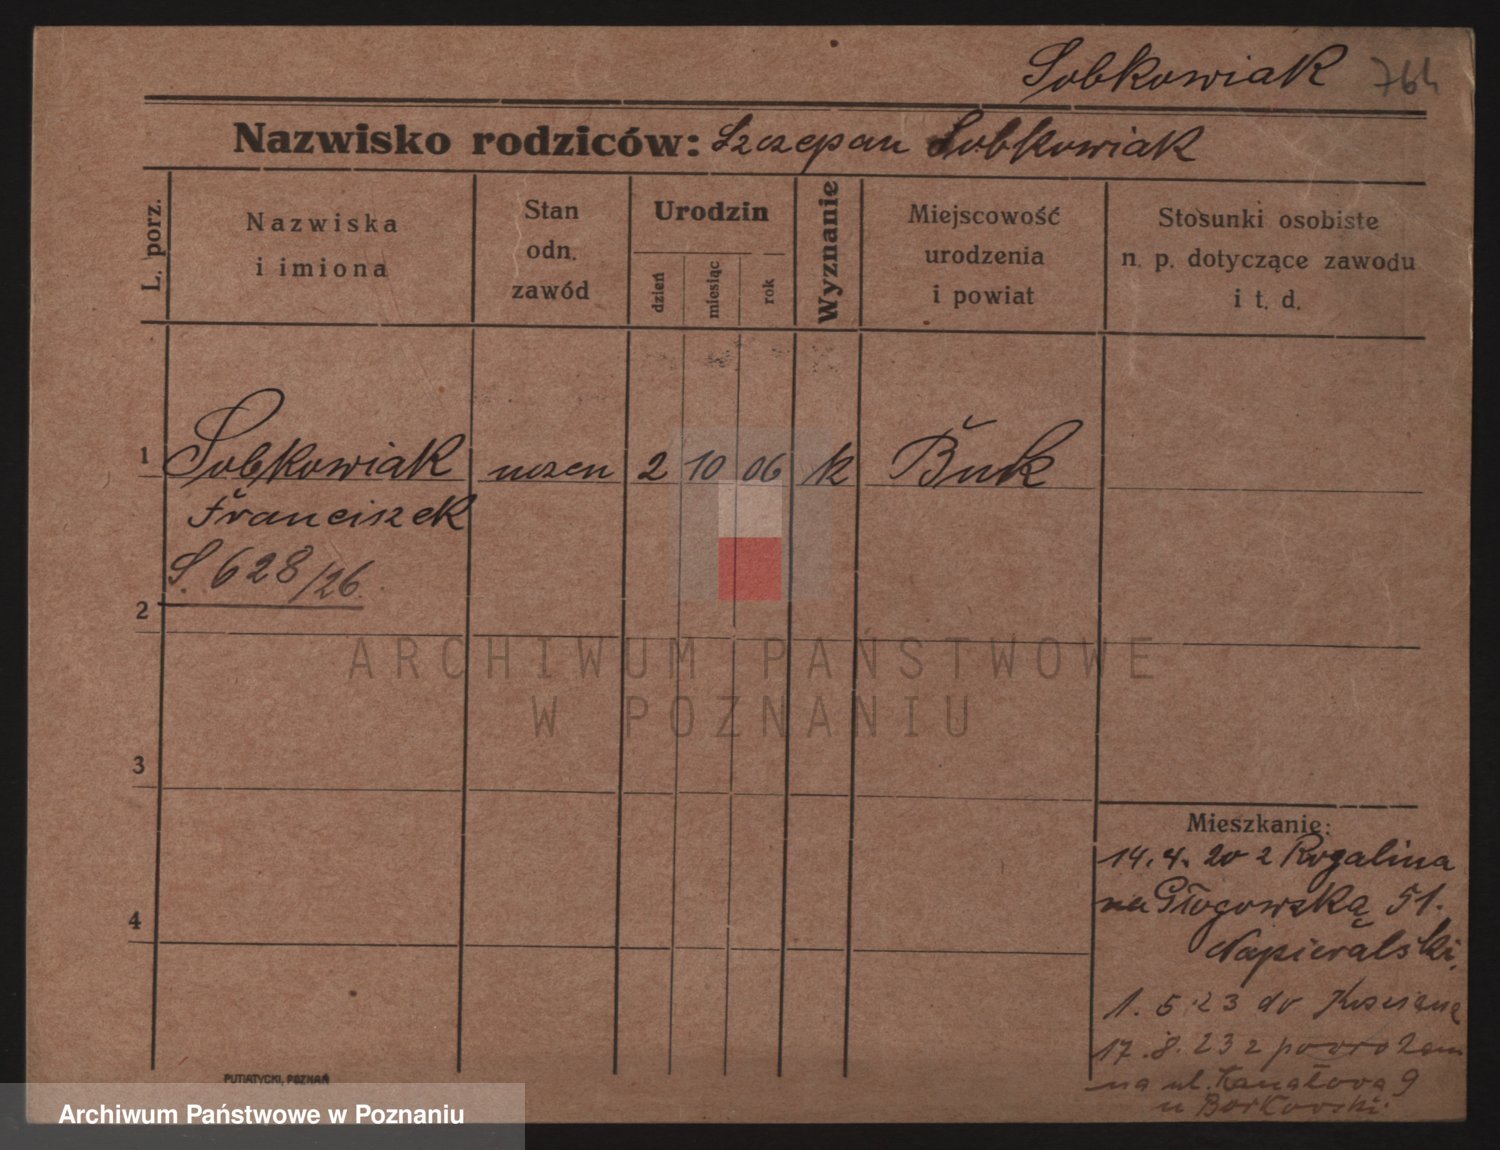 Sobkowiak 764
Nazwisko rodziców: Szczepan Sobkowiak
L. porz.
Nazwiska
i imiona
Stan
odn.
zawód
Urodzin
dzień
miesiąc
rok
Wyznanie
Miejscowość
urodzenia
i powiat
Stosunki osobiste
n. p. dotyczące zawodu
i t. d.
1 Sobkowiak uczen 2 10 06 k Buk
Franciszek
S. 628/26.
2
3
4
Mieszkanie:
14. 4. 20 z Rogalina
na Głogowską 51.
Napieralski.
1. 5. 23 do Kosciana
17. 8. 23 z powrotem
na ul. Kanałowa 9
u Borkowski.
PUTIATYCKI, POZNAŃ
ARCHIWUM PAŃSTWOWE
W POZNANIU
Archiwum Państwowe w Poznaniu